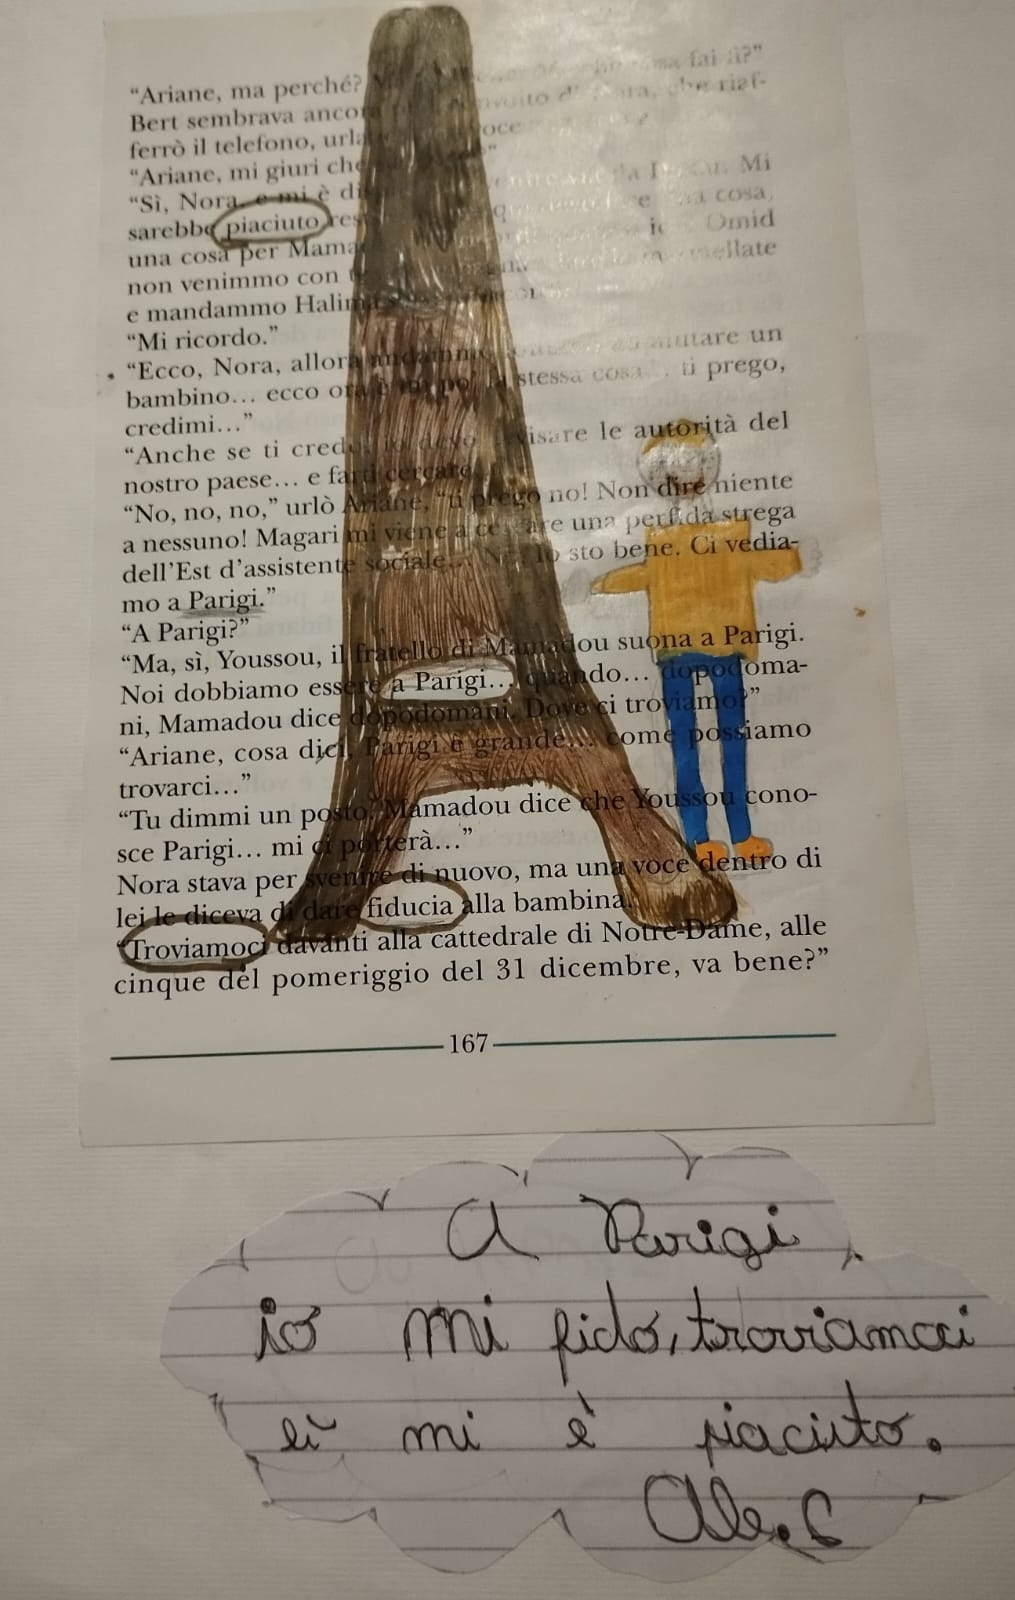 “Ariane, ma perché?
fai lì?”
Bert sembrava ancora
che riaf-
ferrò il telefono, urla
“Ariane, mi giuri che
“Sì, Nora, e mi è di
Mi
sarebbe piaciuto
cosa,
una cosa per Mama
Omid
non venimmo con
e mandammo Halima
“Mi ricordo.”
“Ecco, Nora, allora andammo aiutare un
bambino... ecco ora è un po’ la stessa cosa... ti prego,
credimi...”
“Anche se ti credo io devo avvisare le autorità del
nostro paese... e farti cercare.
“No, no, no,” urlò Ariane, “ti prego no! Non dire niente
a nessuno! Magari mi viene a cercare una perfida strega
dell’Est d’assistente sociale... No, io sto bene. Ci vedia-
mo a Parigi.”
“A Parigi?”
“Ma, sì, Youssou, il fratello di Mamadou suona a Parigi.
Noi dobbiamo essere a Parigi... quando... dopodoma-
ni, Mamadou dice dopodomani. Dove ci troviamo?”
“Ariane, cosa dici, Parigi è grande... come possiamo
trovarci...”
“Tu dimmi un posto. Mamadou dice che Youssou cono-
sce Parigi... mi ci porterà...”
Nora stava per svenire di nuovo, ma una voce dentro di
lei le diceva di dare fiducia alla bambina.
“Troviamoci davanti alla cattedrale di Notre-Dame, alle
cinque del pomeriggio del 31 dicembre, va bene?”
167
A Parigi
io mi fido, troviamoci
lì mi è piaciuto.
Ale. C